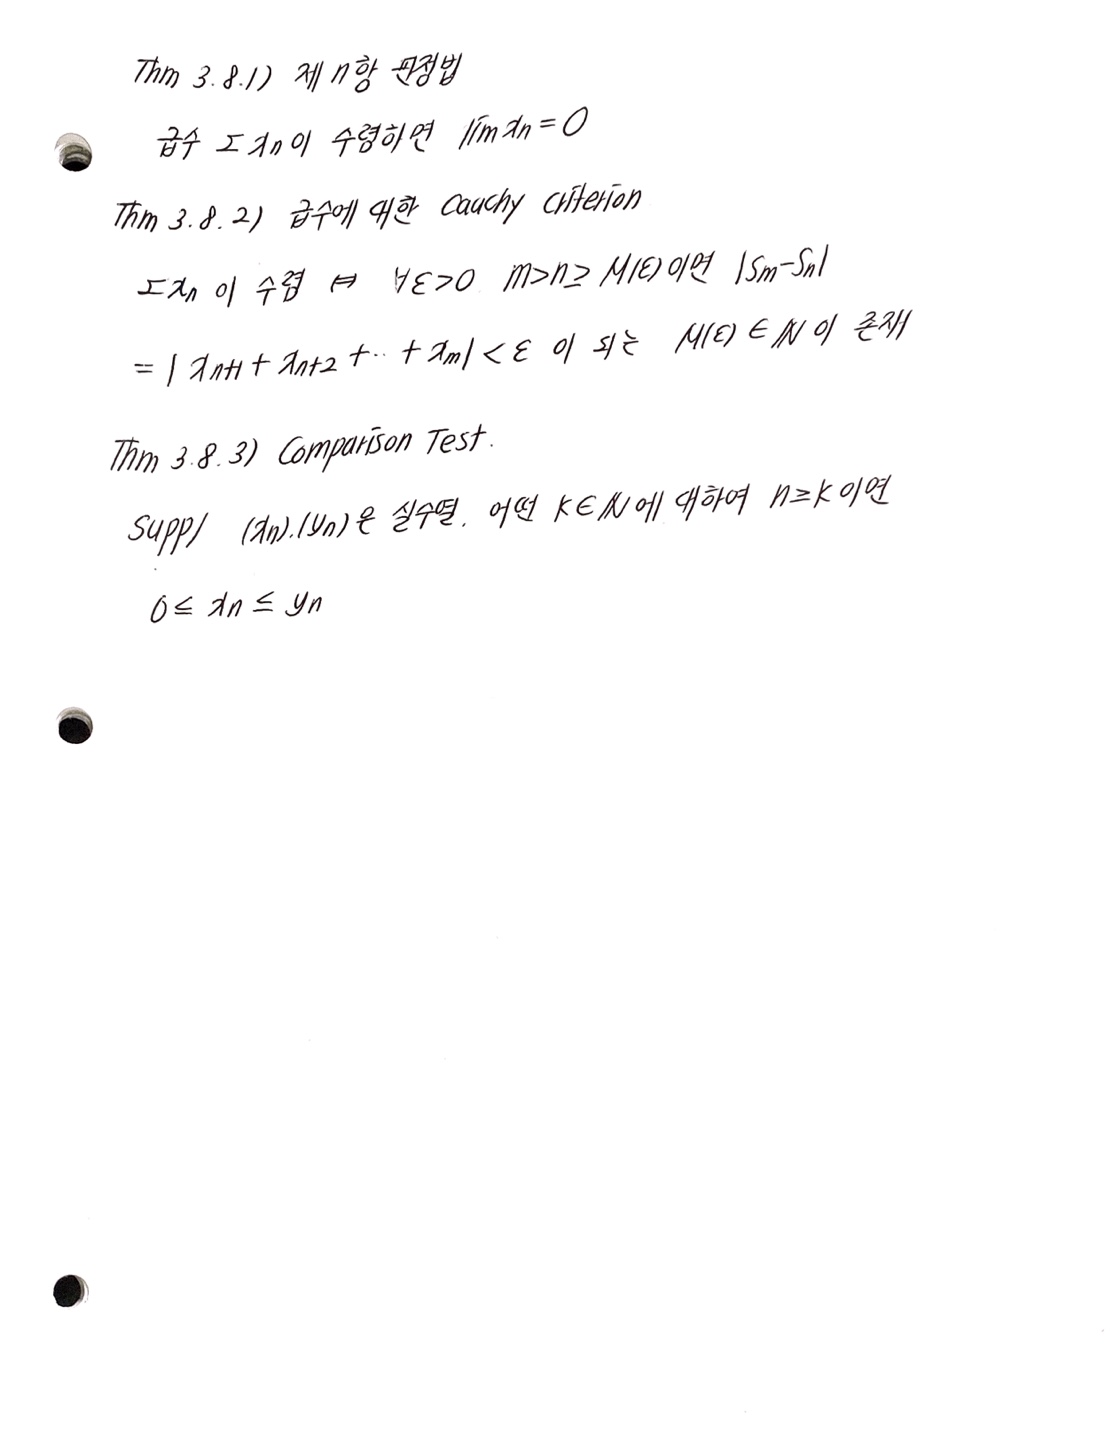 Thm 3.8.1) 제 n항 판정법
급수 Σxn이 수렴하면 lim xn = 0
Thm 3.8.2) 급수에 대한 Cauchy Criterion
Σxn 이 수렴 ⇔ ∀ε>0 m>n≥M(ε)이면 |Sm-Sn|
= | xn+1 + xn+2 + ·· + xm| < ε 이 되는 M(ε) ∈ ℕ 이 존재
Thm 3.8.3) Comparison Test.
Supp/ (xn).(yn)은 실수열. 어떤 K∈ℕ에 대하여 n≥K이면
0 ≤ xn ≤ yn